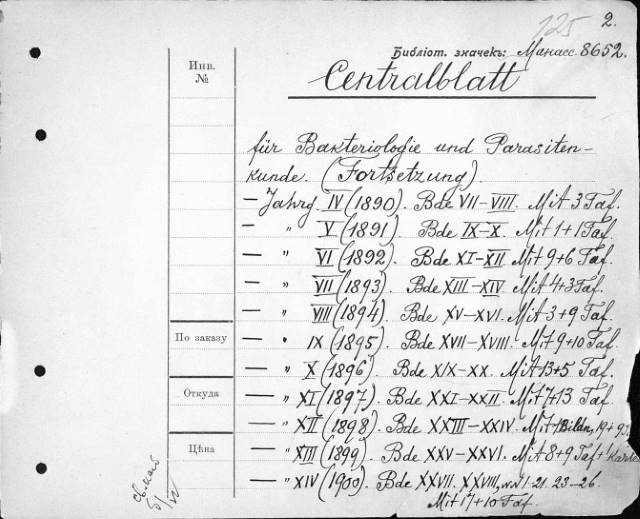 125
2.
Библіот. значекъ: Манасс. 8652.
Инв. №
Centralblatt
für Bakteriologie und Parasiten-
kunde. (Fortsetzung).
— Jahrg. IV (1890). Bde VII–VIII. Mit 3 Taf.
— " V (1891). Bde IX–X. Mit 1+1 Taf.
— " VI (1892). Bde XI–XII Mit 9+6 Taf.
— " VII (1893). Bde XIII–XIV. Mit 4+3 Taf.
— " VIII (1894). Bde XV–XVI. Mit 3+9 Taf.
По заказу
— " IX (1895). Bde XVII–XVIII. Mit 9+10 Taf.
— " X (1896). Bde XIX–XX. Mit 13+5 Taf.
Откуда
— " XI (1897). Bde XXI–XXII. Mit 7+13 Taf.
— " XII (1898). Bde XXIII–XXIV. Mit Bildn., 19+9
Цѣна
— " XIII (1899). Bde XXV–XXVI. Mit 8+9 Taf.+1 Karte
— " XIV (1900). Bde XXVII. XXVIII, №№ 1–21. 23–26.
Mit 17+10 Taf.